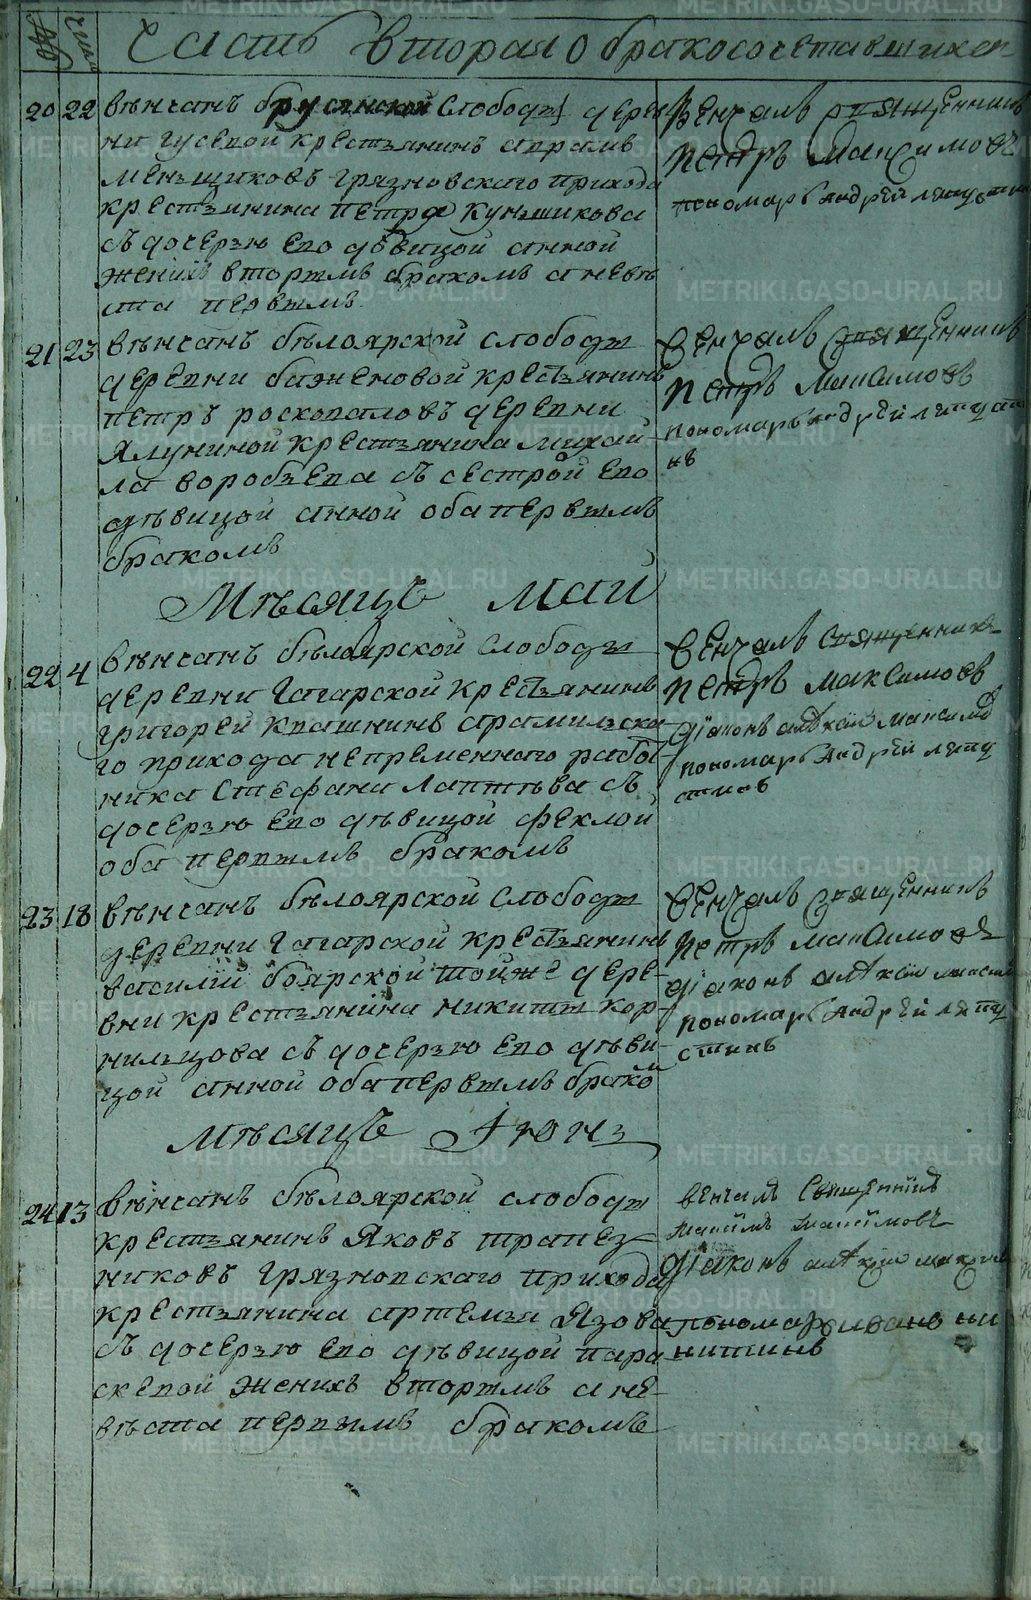 Часть вторая о бракосочетавшихся
20 22 вѣнчанъ брусянской слободы дерев
ни гусевой крестьянинъ аврамъ
меньщиковъ грязновскаго прихода
крестьянина петра куньшикова
съ дочерью его дѣвицой анной
женихъ вторымъ бракомъ а невѣ
ста первымъ
Венчалъ священникъ
петръ максимовъ
пономарь андрей лапустин
21 23 вѣнчанъ бѣлоярской слободы
деревни баженовой крестьянинъ
петръ роскопаловъ деревни
ялуниной крестьянина михай
ла воробьева съ сестрой его
дѣвицой анной оба первымъ
бракомъ
венчалъ священникъ
петръ максимовъ
пономарь андрей лапусти
нъ
Мѣсяцъ маій
22 4 вѣнчанъ бѣлоярской слободы
деревни гагарской крестьянинъ
григорей квашнинъ арамильска
го прихода непременнаго работ
ника стефана лаптѣва съ
дочерью его дѣвицой феклой
оба первымъ бракомъ
венчалъ священникъ
петръ максимовъ
діаконъ алѣксій максимо
пономарь андрей лапу
стинъ
23 18 вѣнчанъ бѣлоярской слободы
деревни гагарской крестьянинъ
василій боярской тойже дере
вни крестьянина никиты кор
нильцова съ дочерью его дѣви
цой анной оба первымъ брако
венчалъ священникъ
петръ максимовъ
діаконъ алѣксій максим
пономарь андрей лапу
стинъ
мѣсяцъ Іюнь
24 13 вѣнчанъ бѣлоярской слободы
крестьянинъ яковъ трапез
никовъ грязновскаго прихода
крестьянина артемья язова
съ дочерью его дѣвицой пара
скевой женихъ вторымъ а не
вѣста первымъ бракомъ
венчалъ священникъ
максимъ максимовъ
діаконъ алѣксій максим
пономарь иванъ ни
китинъ
METRIKI.GASO-URAL.RU